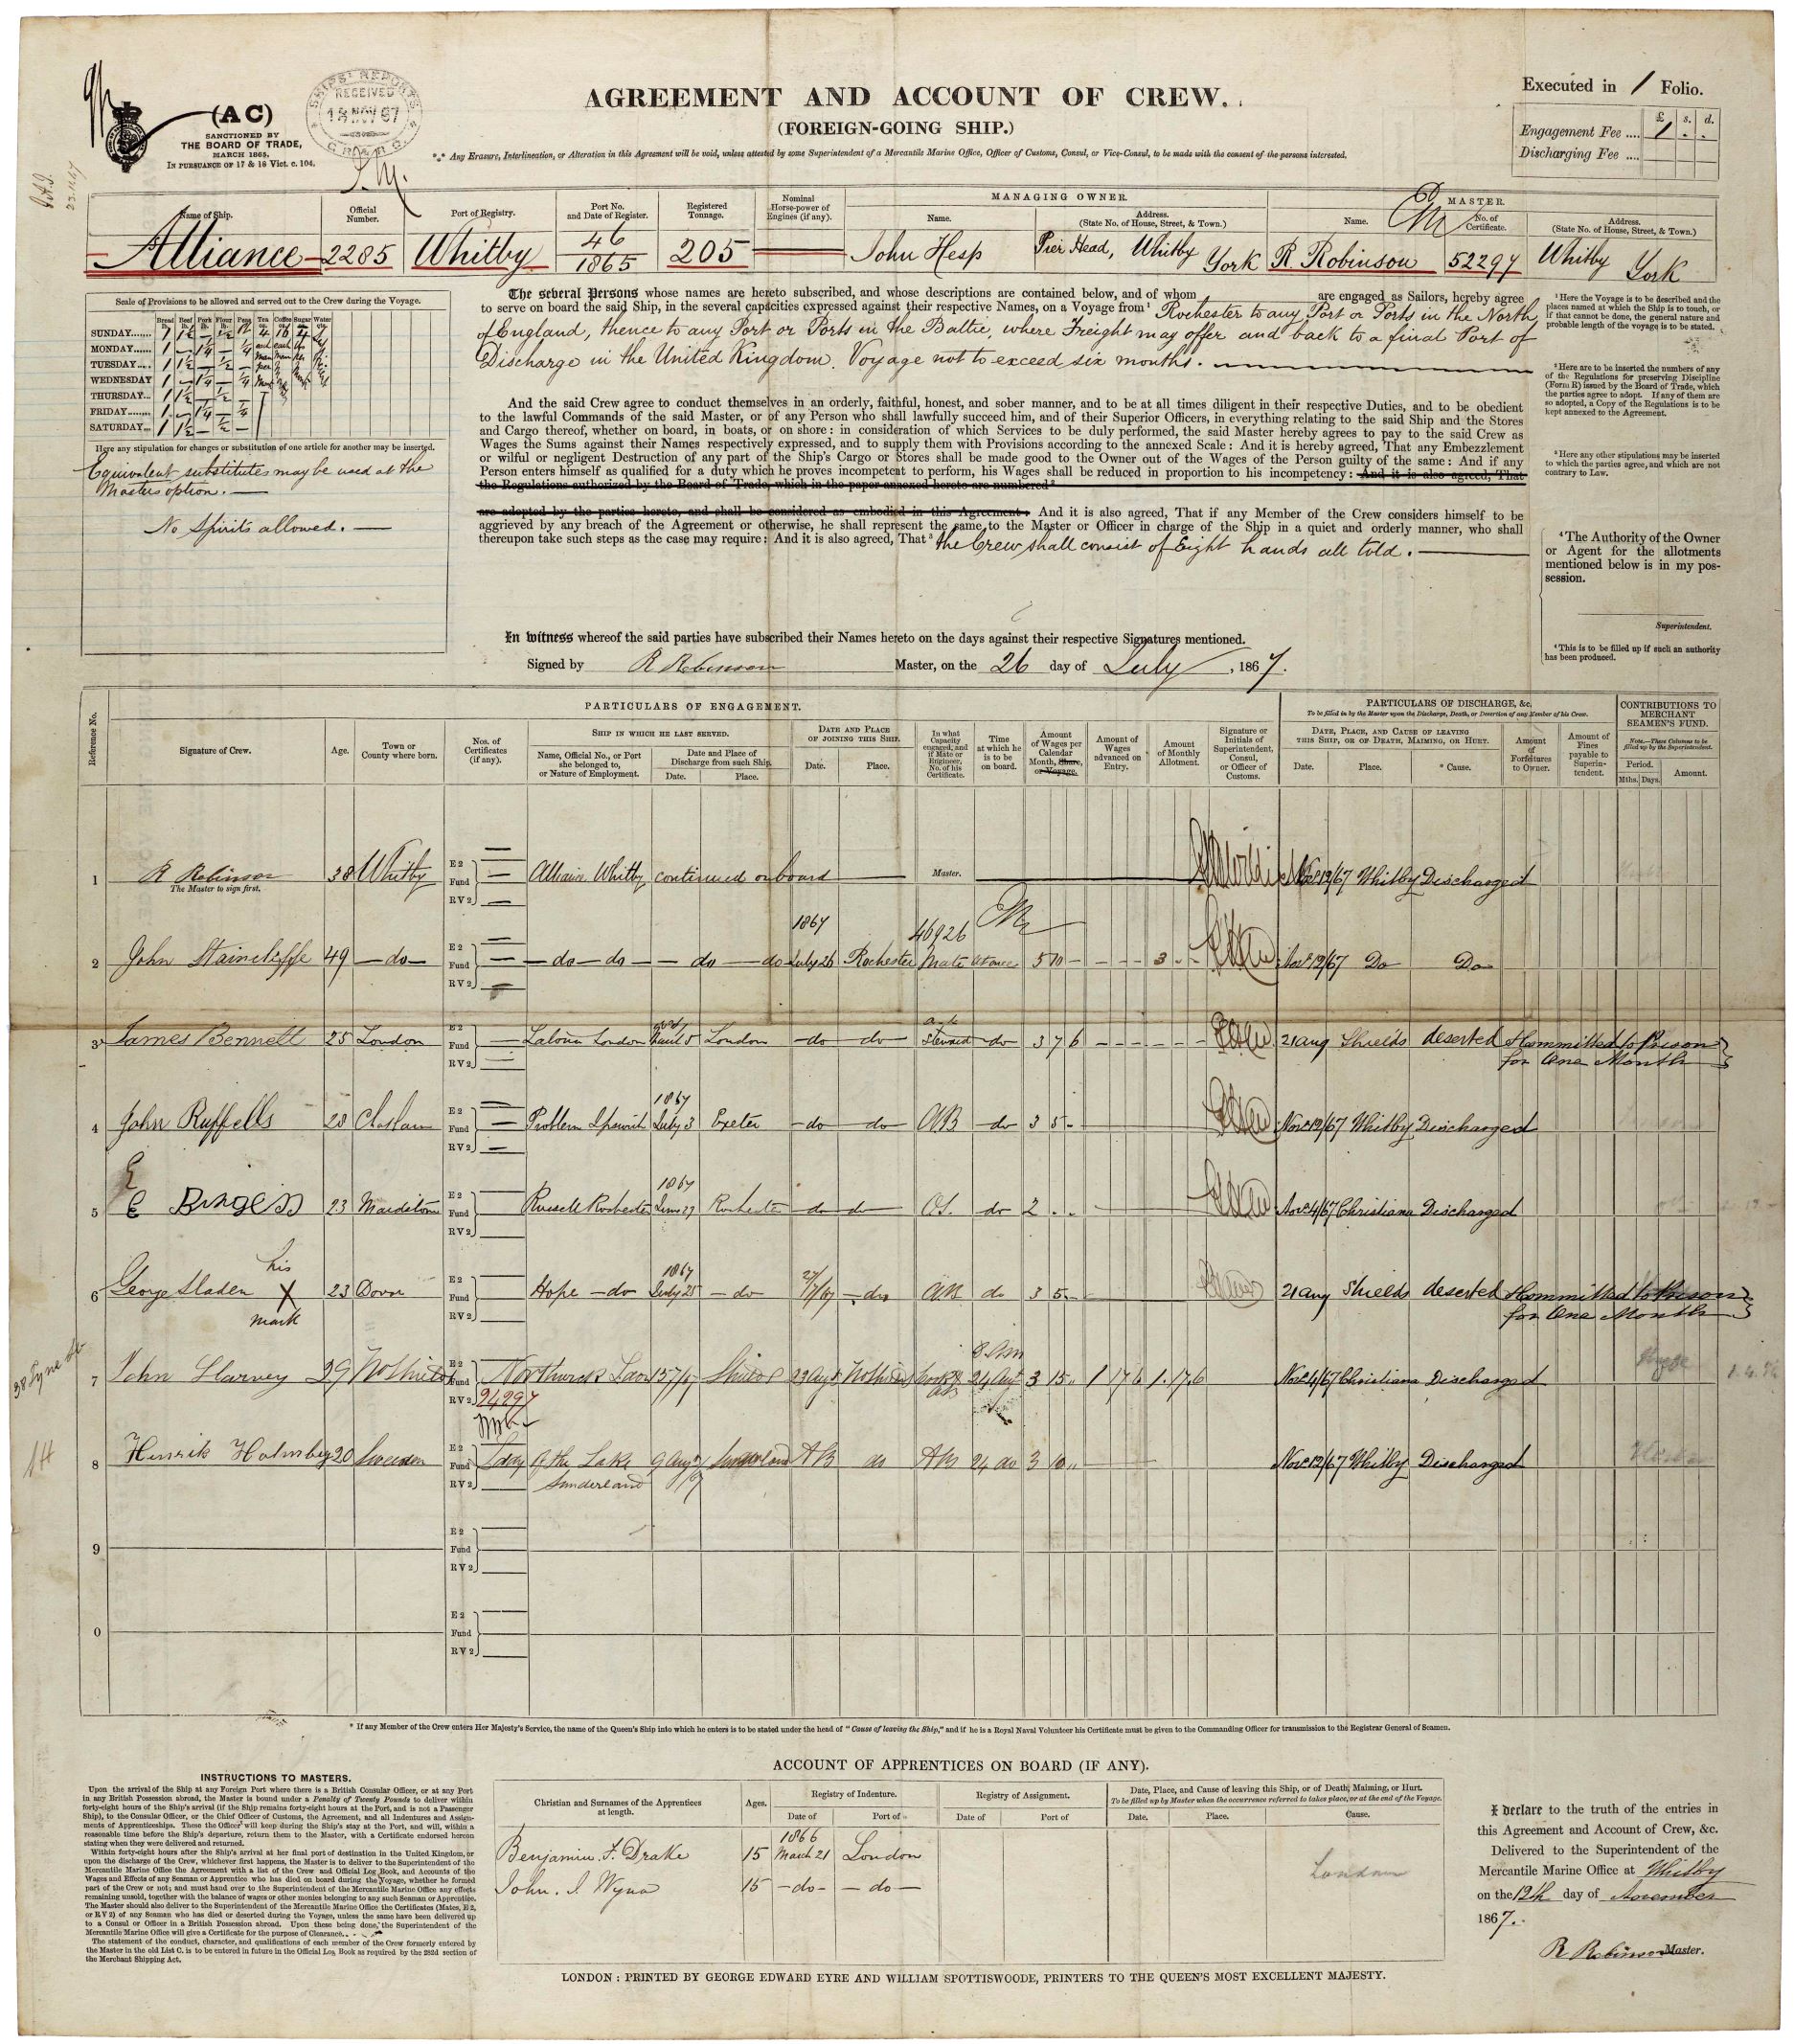 (AC)
SANCTIONED BY
THE BOARD OF TRADE,
MARCH 1865,
IN PURSUANCE OF 17 & 18 Vict. c. 104.
SHIPS' REPORTS
RECEIVED
18 NOV 67
AGREEMENT AND ACCOUNT OF CREW.
(FOREIGN-GOING SHIP.)
*** Any Erasure, Interlineation, or Alteration in this Agreement will be void, unless attested by some Superintendent of a Mercantile Marine Office, Officer of Customs, Consul, or Vice-Consul, to be made with the consent of the persons interested.
Executed in 1 Folio.
£ s. d.
Engagement Fee .... 1 . .
Discharging Fee ....
Name of Ship. Official Number. Port of Registry. Port No. and Date of Register. Registered Tonnage. Nominal Horse-power of Engines (if any). MANAGING OWNER. Name. Address. (State No. of House, Street, & Town.) MASTER. Name. No. of Certificate. Address. (State No. of House, Street, & Town.)
Alliance 2285 Whitby 46 1865 205 John Hesp Pier Head, Whitby York R. Robinson 52297 Whitby York
Scale of Provisions to be allowed and served out to the Crew during the Voyage.
Bread Beef Pork Flour Peas Tea Coffee Sugar Water
SUNDAY 1 1½ — ½ —
MONDAY 1 — 1¼ — ¼
TUESDAY 1 1½ — ½ —
WEDNESDAY 1 — 1¼ — ¼
THURSDAY 1 1½ — ½ —
FRIDAY 1 — 1¼ — ¼
SATURDAY 1 1½ — ½ —
Here any stipulation for changes or substitution of one article for another may be inserted.
Equivalent substitutes may be used at the
Masters option. —
No Spirits allowed. —
The several Persons whose names are hereto subscribed, and whose descriptions are contained below, and of whom are engaged as Sailors, hereby agree
to serve on board the said Ship, in the several capacities expressed against their respective Names, on a Voyage from¹ Rochester to any Port or Ports in the North
of England, thence to any Port or Ports in the Baltic, where Freight may offer and back to a final Port of
Discharge in the United Kingdom. Voyage not to exceed six months.
And the said Crew agree to conduct themselves in an orderly, faithful, honest, and sober manner, and to be at all times diligent in their respective Duties, and to be obedient
to the lawful Commands of the said Master, or of any Person who shall lawfully succeed him, and of their Superior Officers, in everything relating to the said Ship and the Stores
and Cargo thereof, whether on board, in boats, or on shore: in consideration of which Services to be duly performed, the said Master hereby agrees to pay to the said Crew as
Wages the Sums against their Names respectively expressed, and to supply them with Provisions according to the annexed Scale: And it is hereby agreed, That any Embezzlement
or wilful or negligent Destruction of any part of the Ship's Cargo or Stores shall be made good to the Owner out of the Wages of the Person guilty of the same: And if any
Person enters himself as qualified for a duty which he proves incompetent to perform, his Wages shall be reduced in proportion to his incompetency: And it is also agreed, That
the Regulations authorized by the Board of Trade, which in the paper annexed hereto are numbered²
are adopted by the parties hereto, and shall be considered as embodied in this Agreement: And it is also agreed, That if any Member of the Crew considers himself to be
aggrieved by any breach of the Agreement or otherwise, he shall represent the same to the Master or Officer in charge of the Ship in a quiet and orderly manner, who shall
thereupon take such steps as the case may require: And it is also agreed, That³ the Crew shall consist of Eight hands all told.
¹ Here the Voyage is to be described and the
places named at which the Ship is to touch, or
if that cannot be done, the general nature and
probable length of the voyage is to be stated.
² Here are to be inserted the numbers of any
of the Regulations for preserving Discipline
(Form R) issued by the Board of Trade, which
the parties agree to adopt. If any of them are
so adopted, a Copy of the Regulations is to be
kept annexed to the Agreement.
³ Here any other stipulations may be inserted
to which the parties agree, and which are not
contrary to Law.
⁴ The Authority of the Owner
or Agent for the allotments
mentioned below is in my pos-
session.
Superintendent.
⁴ This is to be filled up if such an authority
has been produced.
In Witness whereof the said parties have subscribed their Names hereto on the days against their respective Signatures mentioned.
Signed by R Robinson Master, on the 26 day of July, 1867.
PARTICULARS OF ENGAGEMENT.
Reference No. Signature of Crew. Age. Town or County where born. Nos. of Certificates (if any). SHIP IN WHICH HE LAST SERVED. Name, Official No., or Port she belonged to, or Nature of Employment. Date and Place of Discharge from such Ship. Date. Place. DATE AND PLACE OF JOINING THIS SHIP. Date. Place. In what Capacity engaged, and if Mate or Engineer, No. of his Certificate. Time at which he is to be on board. Amount of Wages per Calendar Month, Share, or Voyage. Amount of Wages advanced on Entry. Amount of Monthly Allotment. Signature or Initials of Superintendent, Consul, or Officer of Customs.
PARTICULARS OF DISCHARGE, &c.
To be filled in by the Master upon the Discharge, Death, or Desertion of any Member of his Crew.
DATE, PLACE, AND CAUSE OF LEAVING THIS SHIP, OR OF DEATH, MAIMING, OR HURT. Date. Place. * Cause. Amount of Forfeitures to Owner. Amount of Fines payable to Superintendent.
CONTRIBUTIONS TO MERCHANT SEAMEN'S FUND.
Note.—These Columns to be filled up by the Superintendent.
Period. Mths. Days. Amount.
1 R Robinson 38 Whitby E 2 Fund RV 2 Alliance Whitby continued on board Master. Nov 12/67 Whitby Discharged
The Master to sign first.
1867 46926
2 John Staincliffe 49 — do — E 2 Fund RV 2 — do — do — — do — do July 26 Rochester Mate at once 5 10 - 3 - - Nov 12/67 Do Do
3 James Bennett 25 London E 2 Fund RV 2 London London do do Steward do 3 7 6 21 Aug Shields deserted & Committed to Prison
for One Month
1867
4 John Ruffells 23 E 2 Fund RV 2 Problem Ipswich July 3 Exeter do do AB do 3 5 - Nov 12/67 Whitby Discharged
1867
5 E 23 Maidstone E 2 Fund RV 2 Russell Rochester June 27 Rochester do do OS. do 2 . . Nov 4/67 Christiana Discharged
his 1867
6 George Sladen X 23 Dover E 2 Fund RV 2 Hope — do July 25 — do 27/7/67 do AB do 3 5 - 21 Aug Shields deserted & Committed to Prison
mark for One Month
7 John Harvey 29 E 2 Fund RV 2 94897 23 Aug Cook & AB 24 Aug 3 15 1 17 6 1.17.6 Nov 4/67 Christiana Discharged
8 Henrik Holmberg 20 Sweden E 2 Fund RV 2 Lady of the Lake 9 Aug Sunderland do AB 24 do 3 10 Nov 12/67 Whitby Discharged
Sunderland
9 E 2 Fund RV 2
0 E 2 Fund RV 2
* If any Member of the Crew enters Her Majesty's Service, the name of the Queen's Ship into which he enters is to be stated under the head of "Cause of leaving the Ship," and if he is a Royal Naval Volunteer his Certificate must be given to the Commanding Officer for transmission to the Registrar General of Seamen.
INSTRUCTIONS TO MASTERS.
Upon the arrival of the Ship at any Foreign Port where there is a British Consular Officer, or at any Port
in any British Possession abroad, the Master is bound under a Penalty of Twenty Pounds to deliver within
forty-eight hours of the Ship's arrival (if the Ship remains forty-eight hours at the Port, and is not a Passenger
Ship), to the Consular Officer, or the Chief Officer of Customs, the Agreement, and all Indentures and Assign-
ments of Apprenticeships. These the Officer will keep during the Ship's stay at the Port, and will, within a
reasonable time before the Ship's departure, return them to the Master, with a Certificate endorsed hereon
stating when they were delivered and returned.
Within forty-eight hours after the Ship's arrival at her final port of destination in the United Kingdom, or
upon the discharge of the Crew, whichever first happens, the Master is to deliver to the Superintendent of the
Mercantile Marine Office the Agreement with a list of the Crew and Official Log Book, and Accounts of the
Wages and Effects of any Seaman or Apprentice who has died on board during the Voyage, whether he formed
part of the Crew or not; and must hand over to the Superintendent of the Mercantile Marine Office any effects
remaining unsold, together with the balance of wages or other monies belonging to any such Seaman or Apprentice.
The Master should also deliver to the Superintendent of the Mercantile Marine Office the Certificates (Mates, E 2,
or RV 2) of any Seaman who has died or deserted during the Voyage, unless the same have been delivered up
to a Consul or Officer in a British Possession abroad. Upon these being done, the Superintendent of the
Mercantile Marine Office will give a Certificate for the purpose of Clearance.
The statement of the conduct, character, and qualifications of each member of the Crew formerly entered by
the Master in the old List C. is to be entered in future in the Official Log Book as required by the 282d section of
the Merchant Shipping Act.
ACCOUNT OF APPRENTICES ON BOARD (IF ANY).
Christian and Surnames of the Apprentices at length. Ages. Registry of Indenture. Date of Port of Registry of Assignment. Date of Port of Date, Place, and Cause of leaving this Ship, or of Death, Maiming, or Hurt.
To be filled up by Master when the occurrence referred to takes place, or at the end of the Voyage.
Date. Place. Cause.
1866
Benjamin F. Drake 15 March 21 London
John. J. Wynn 15 — do — — do —
London
I declare to the truth of the entries in
this Agreement and Account of Crew, &c.
Delivered to the Superintendent of the
Mercantile Marine Office at Whitby
on the 12th day of November
1867.
R Robinson Master.
LONDON: PRINTED BY GEORGE EDWARD EYRE AND WILLIAM SPOTTISWOODE, PRINTERS TO THE QUEEN'S MOST EXCELLENT MAJESTY.